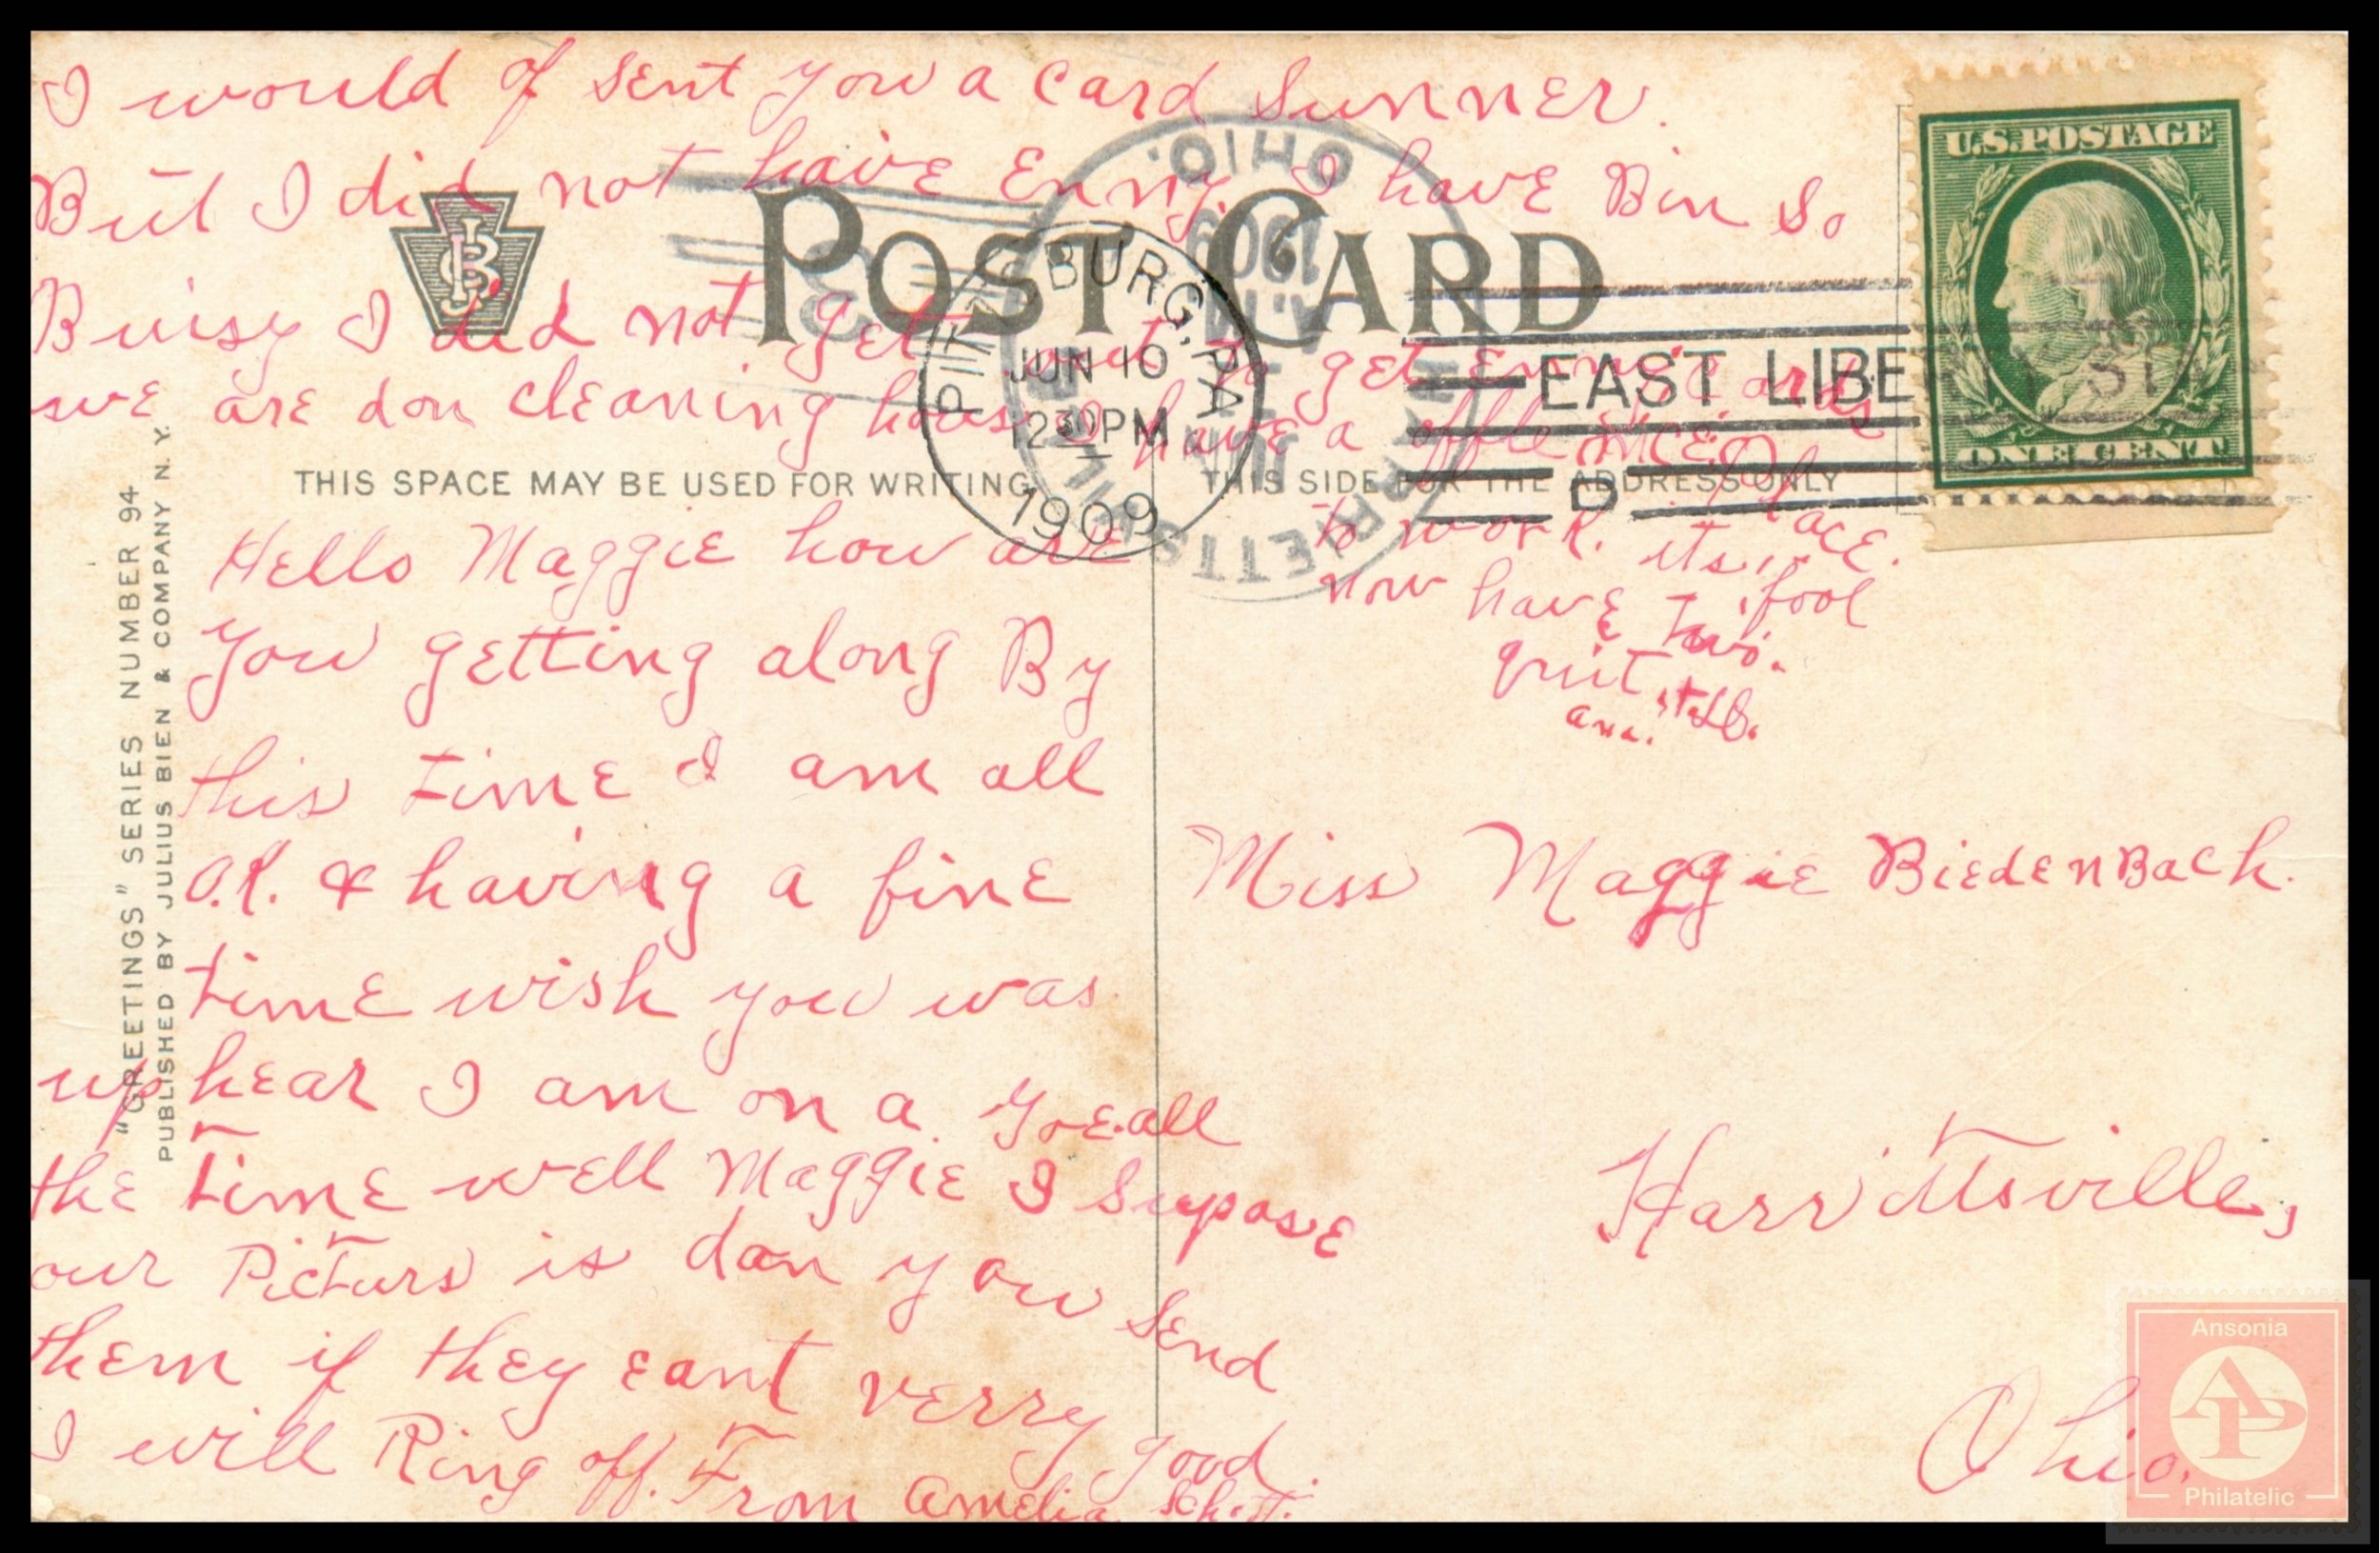 I would of sent you a card sunner.
But I did not have Enny. I have Bin so
Buisy I did not get out to get enny cards
we are don cleaning hous I have a offle nice place.
to work. its fool
now have two.
quit
Hello Maggie how are
you getting along By
this time I am all
O.K. & having a fine
time wish you was
up hear I am on a Goe all
the time well Maggie I supose
our Picturs is don you send
them if they eant verry good.
I will Ring off. From Amelia
Miss Maggie BiedenBach.
Harriettsville,
Ohio.
POST CARD
JB
THIS SPACE MAY BE USED FOR WRITING
THIS SIDE FOR THE ADDRESS ONLY
"GREETINGS" SERIES NUMBER 94
PUBLISHED BY JULIUS BIEN & COMPANY N. Y.
PITTSBURG, PA
JUN 10
12 30 PM
1909
EAST LIBERTY STA
D
HARRIETTSVILLE
OHIO.
1909
A.M.
U.S. POSTAGE
ONE CENT
Ansonia
AP
Philatelic